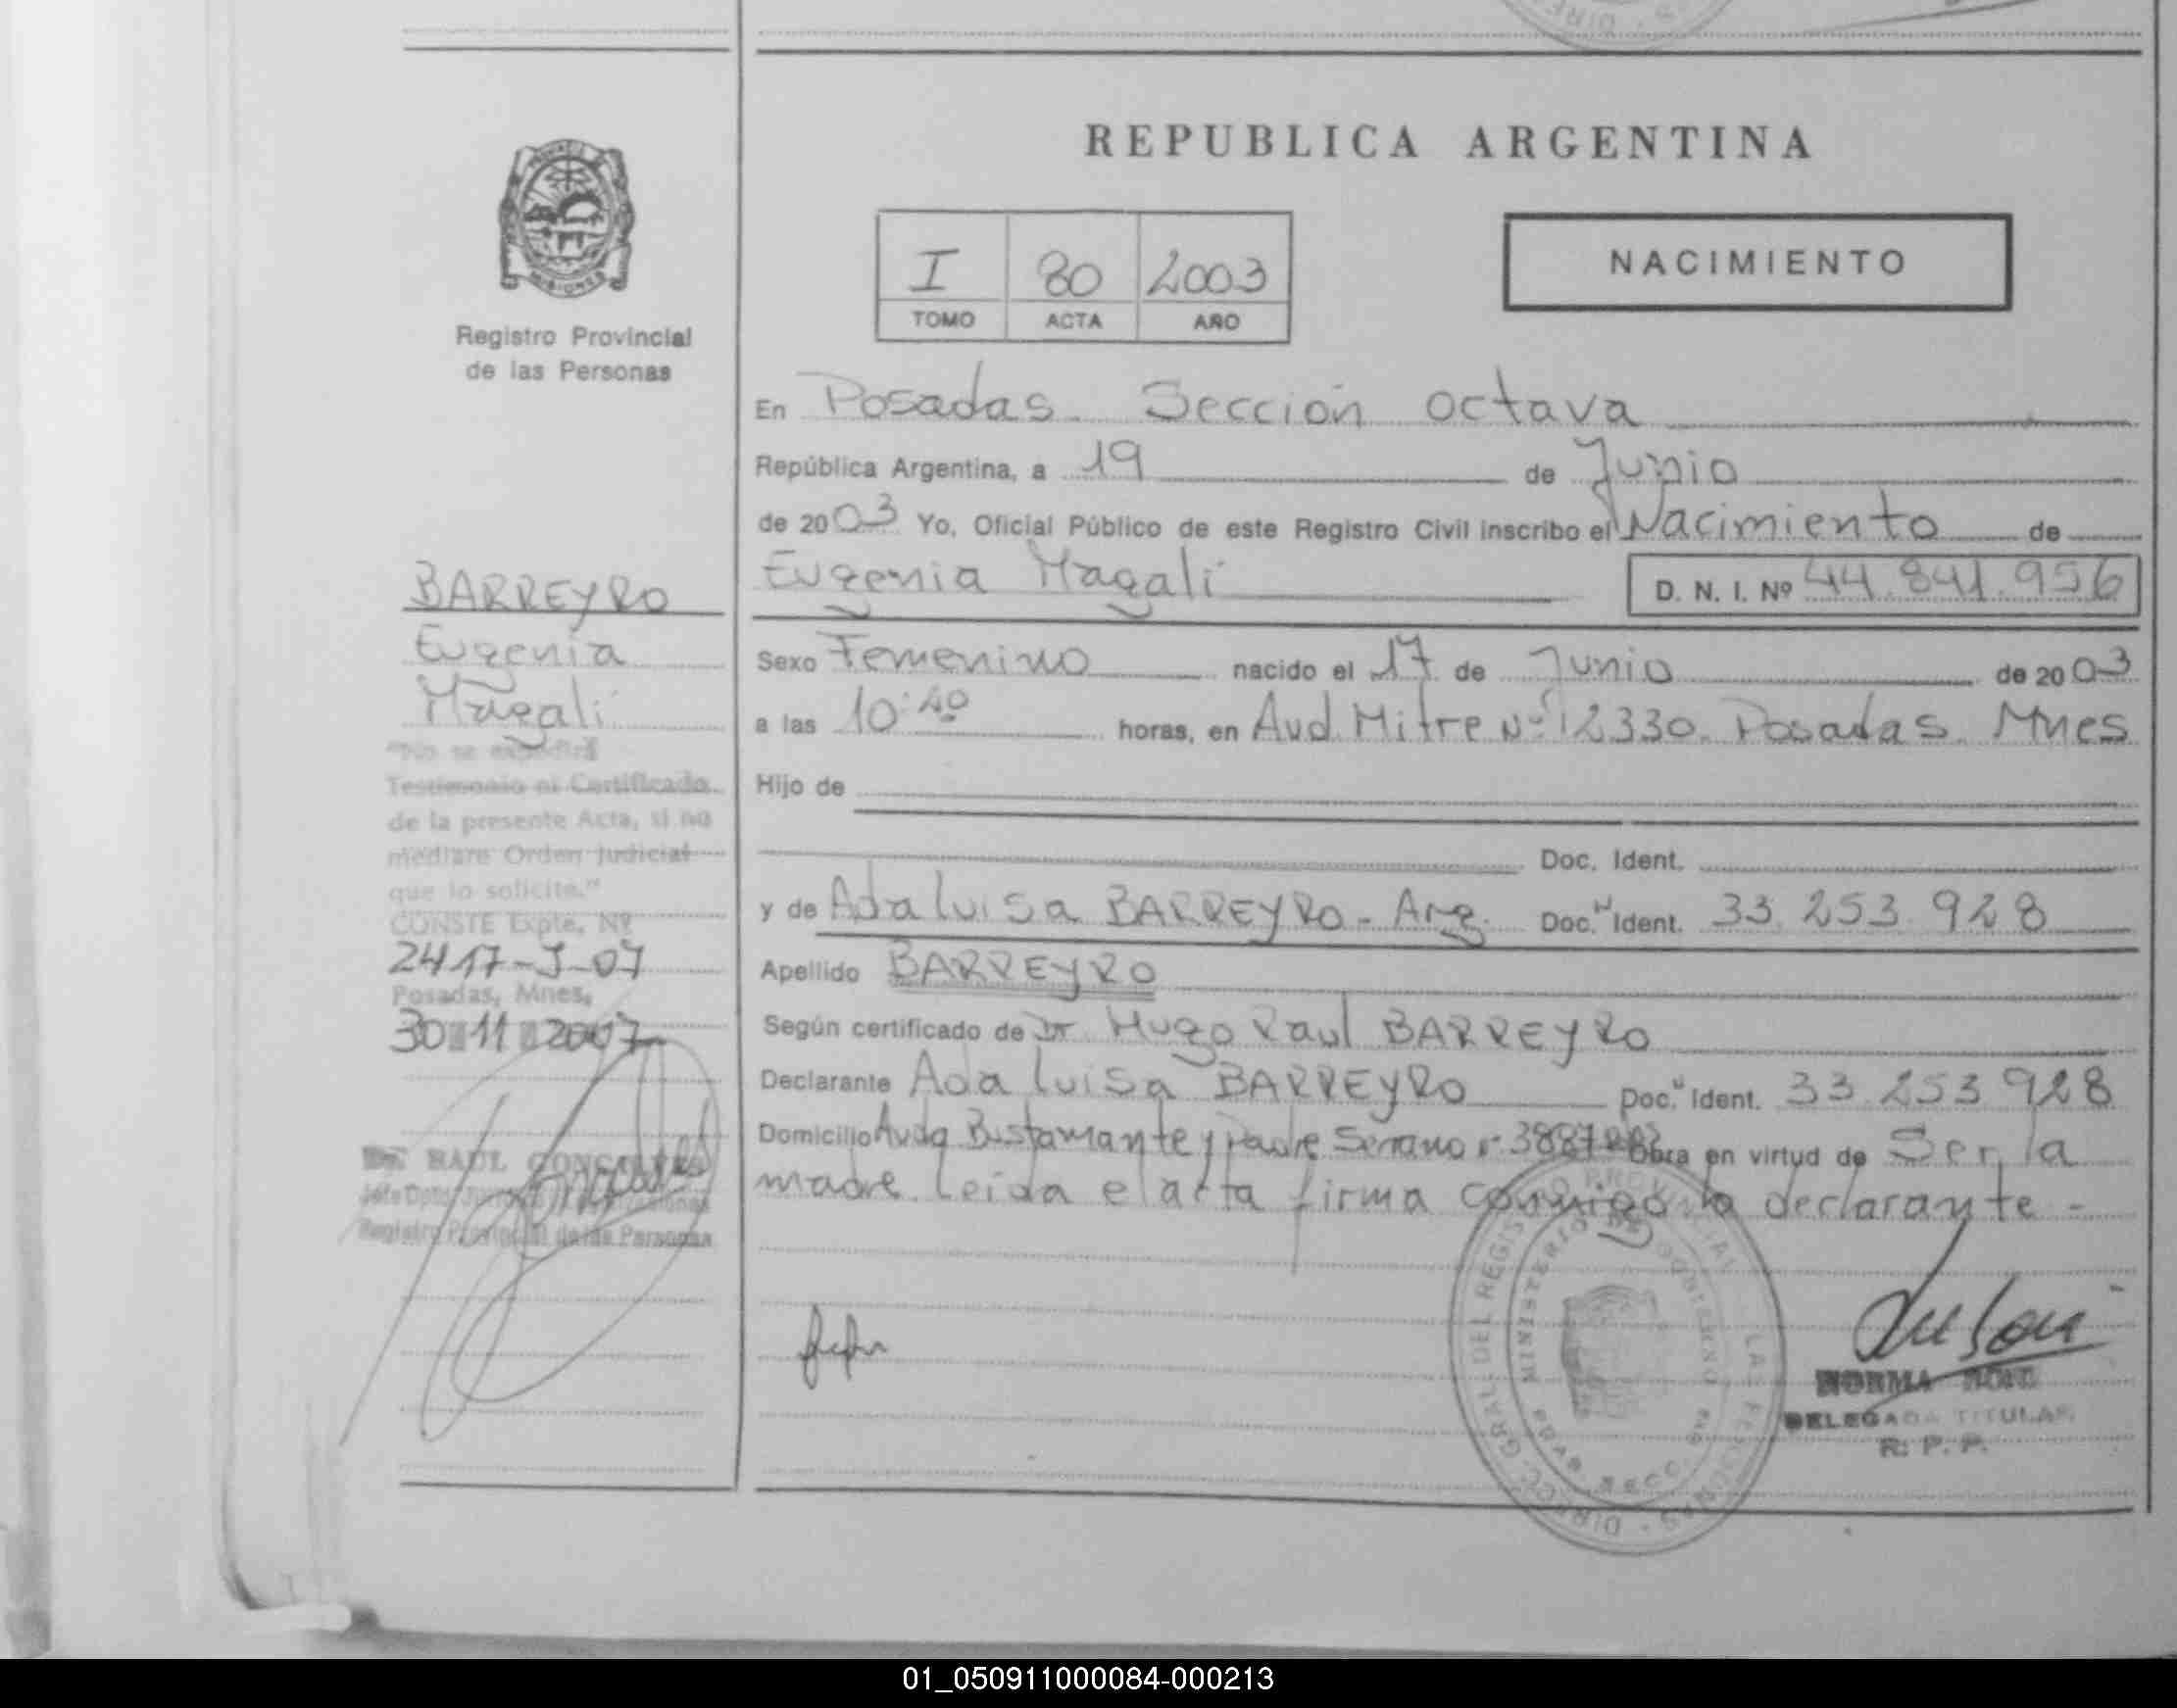 REPUBLICA ARGENTINA
NACIMIENTO
I 80 2003
TOMO ACTA AÑO
MISIONES
Registro Provincial
de las Personas
En Posadas. Sección Octava
República Argentina, a 19 de Junio
de 2003 Yo, Oficial Público de este Registro Civil inscribo el Nacimiento de
Eugenia Magali
D. N. I. Nº 44.841.956
Sexo Femenino nacido el 17 de Junio de 2003
a las 10:40 horas, en Avd. Mitre Nº 2330. Posadas. Mnes
Hijo de
Doc. Ident.
y de Ada Luisa BARREYRO - Arg. Doc. Ident. 33.253.928
Apellido BARREYRO
Según certificado de Dr. Hugo Raul BARREYRO
Declarante Ada Luisa BARREYRO Doc. Ident. 33.253.928
Domicilio Avda Bustamante y Padre Serrano nº 3887 Obra en virtud de Ser la
madre. Leida el acta firma conmigo la declarante -
BARREYRO
Eugenia
Magali
"No se expedirá
Testimonio ni Certificado
de la presente Acta, si no
mediare Orden Judicial
que lo solicite."
CONSTE Expte. Nº
2417-J-07
Posadas, Mnes,
30 11 2007
Dr. RAUL GONCALVES
Registro Provincial de las Personas
DIRECC. GRAL. DEL REGISTRO PROVINCIAL DE LAS PERSONAS
MINISTERIO DE GOBIERNO
NORMA
DELEGADA TITULAR
R. P. P.
01_050911000084-000213